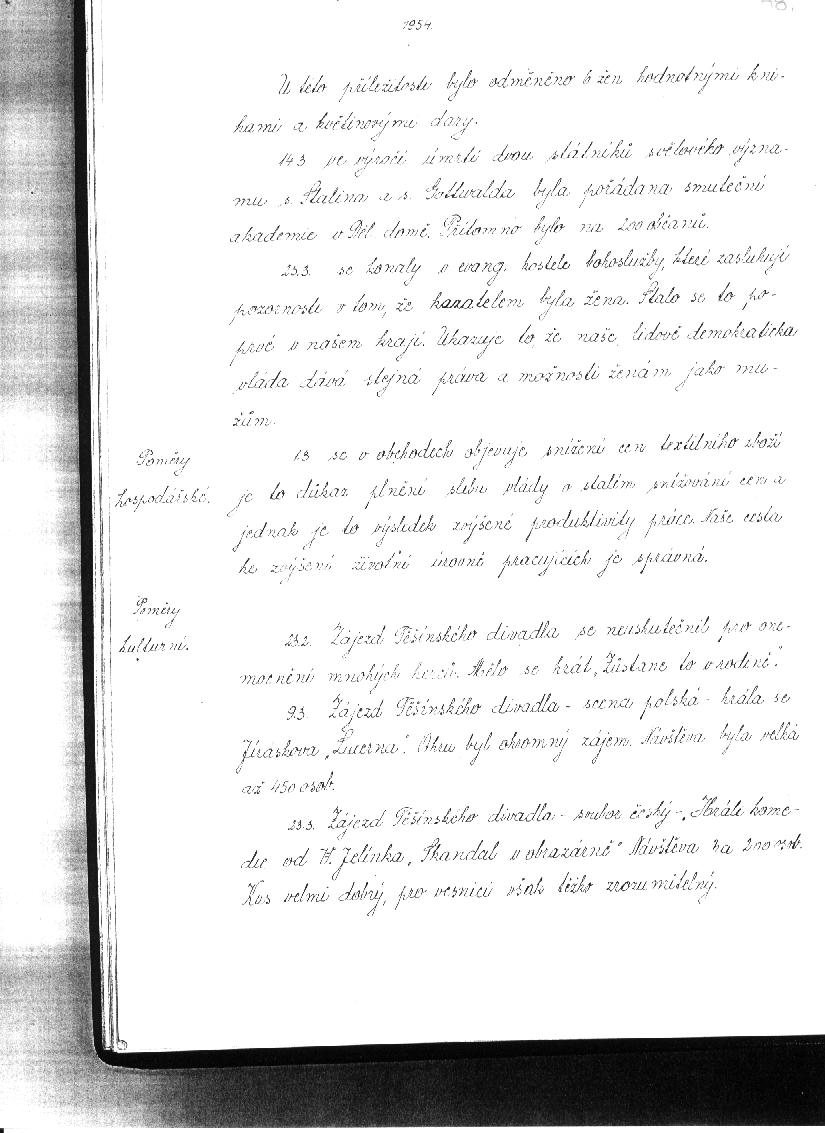 48.
1954.
U této příležitosti bylo odměněno 6 žen hodnotnými kni-
hami a květinovými dary.
14.3. ve výročí úmrtí dvou státníků světového význa-
mu s. Stalina a s. Gottwalda byla pořádana smuteční
akademie v Děl. domě. Přítomno bylo na 200 občanů.
25.3. se konaly v evang. kostele bohoslužby, které zasluhují
pozornosti v tom, že kazatelem byla žena. Stalo se to po-
prvé v našem kraji. Ukazuje to, že naše lidově demokratická
vláda dává stejná práva a možnosti ženám jako mu-
žům.
Poměry
hospodářské.
1.3. se v obchodech objevuje snížení cen textilního zboží
je to důkaz plnění slibu vlády o stálém snižování cen a
jednak je to výsledek zvýšené produktivity práce. Naše cesta
ke zvýšení životní úrovně pracujících je správná.
Poměry
kulturní.
23.2. Zájezd Těšínského divadla se neuskutečnil pro one-
mocnění mnohých herců. Mělo se hrát „Zůstane to v rodině".
9.3. Zájezd Těšínského divadla - scena polská - hrála se
Jiráskova „Lucerna". O hru byl ohromný zájem. Návštěva byla velká
až 450 osob.
23.3. Zájezd Těšínského divadla - soubor český -. Hráli kome-
die od H. Jelínka „Skandal v obrazárně" Návštěva na 200 osob.
Kus velmi dobrý, pro vesnici však těžko zrozumitelný.